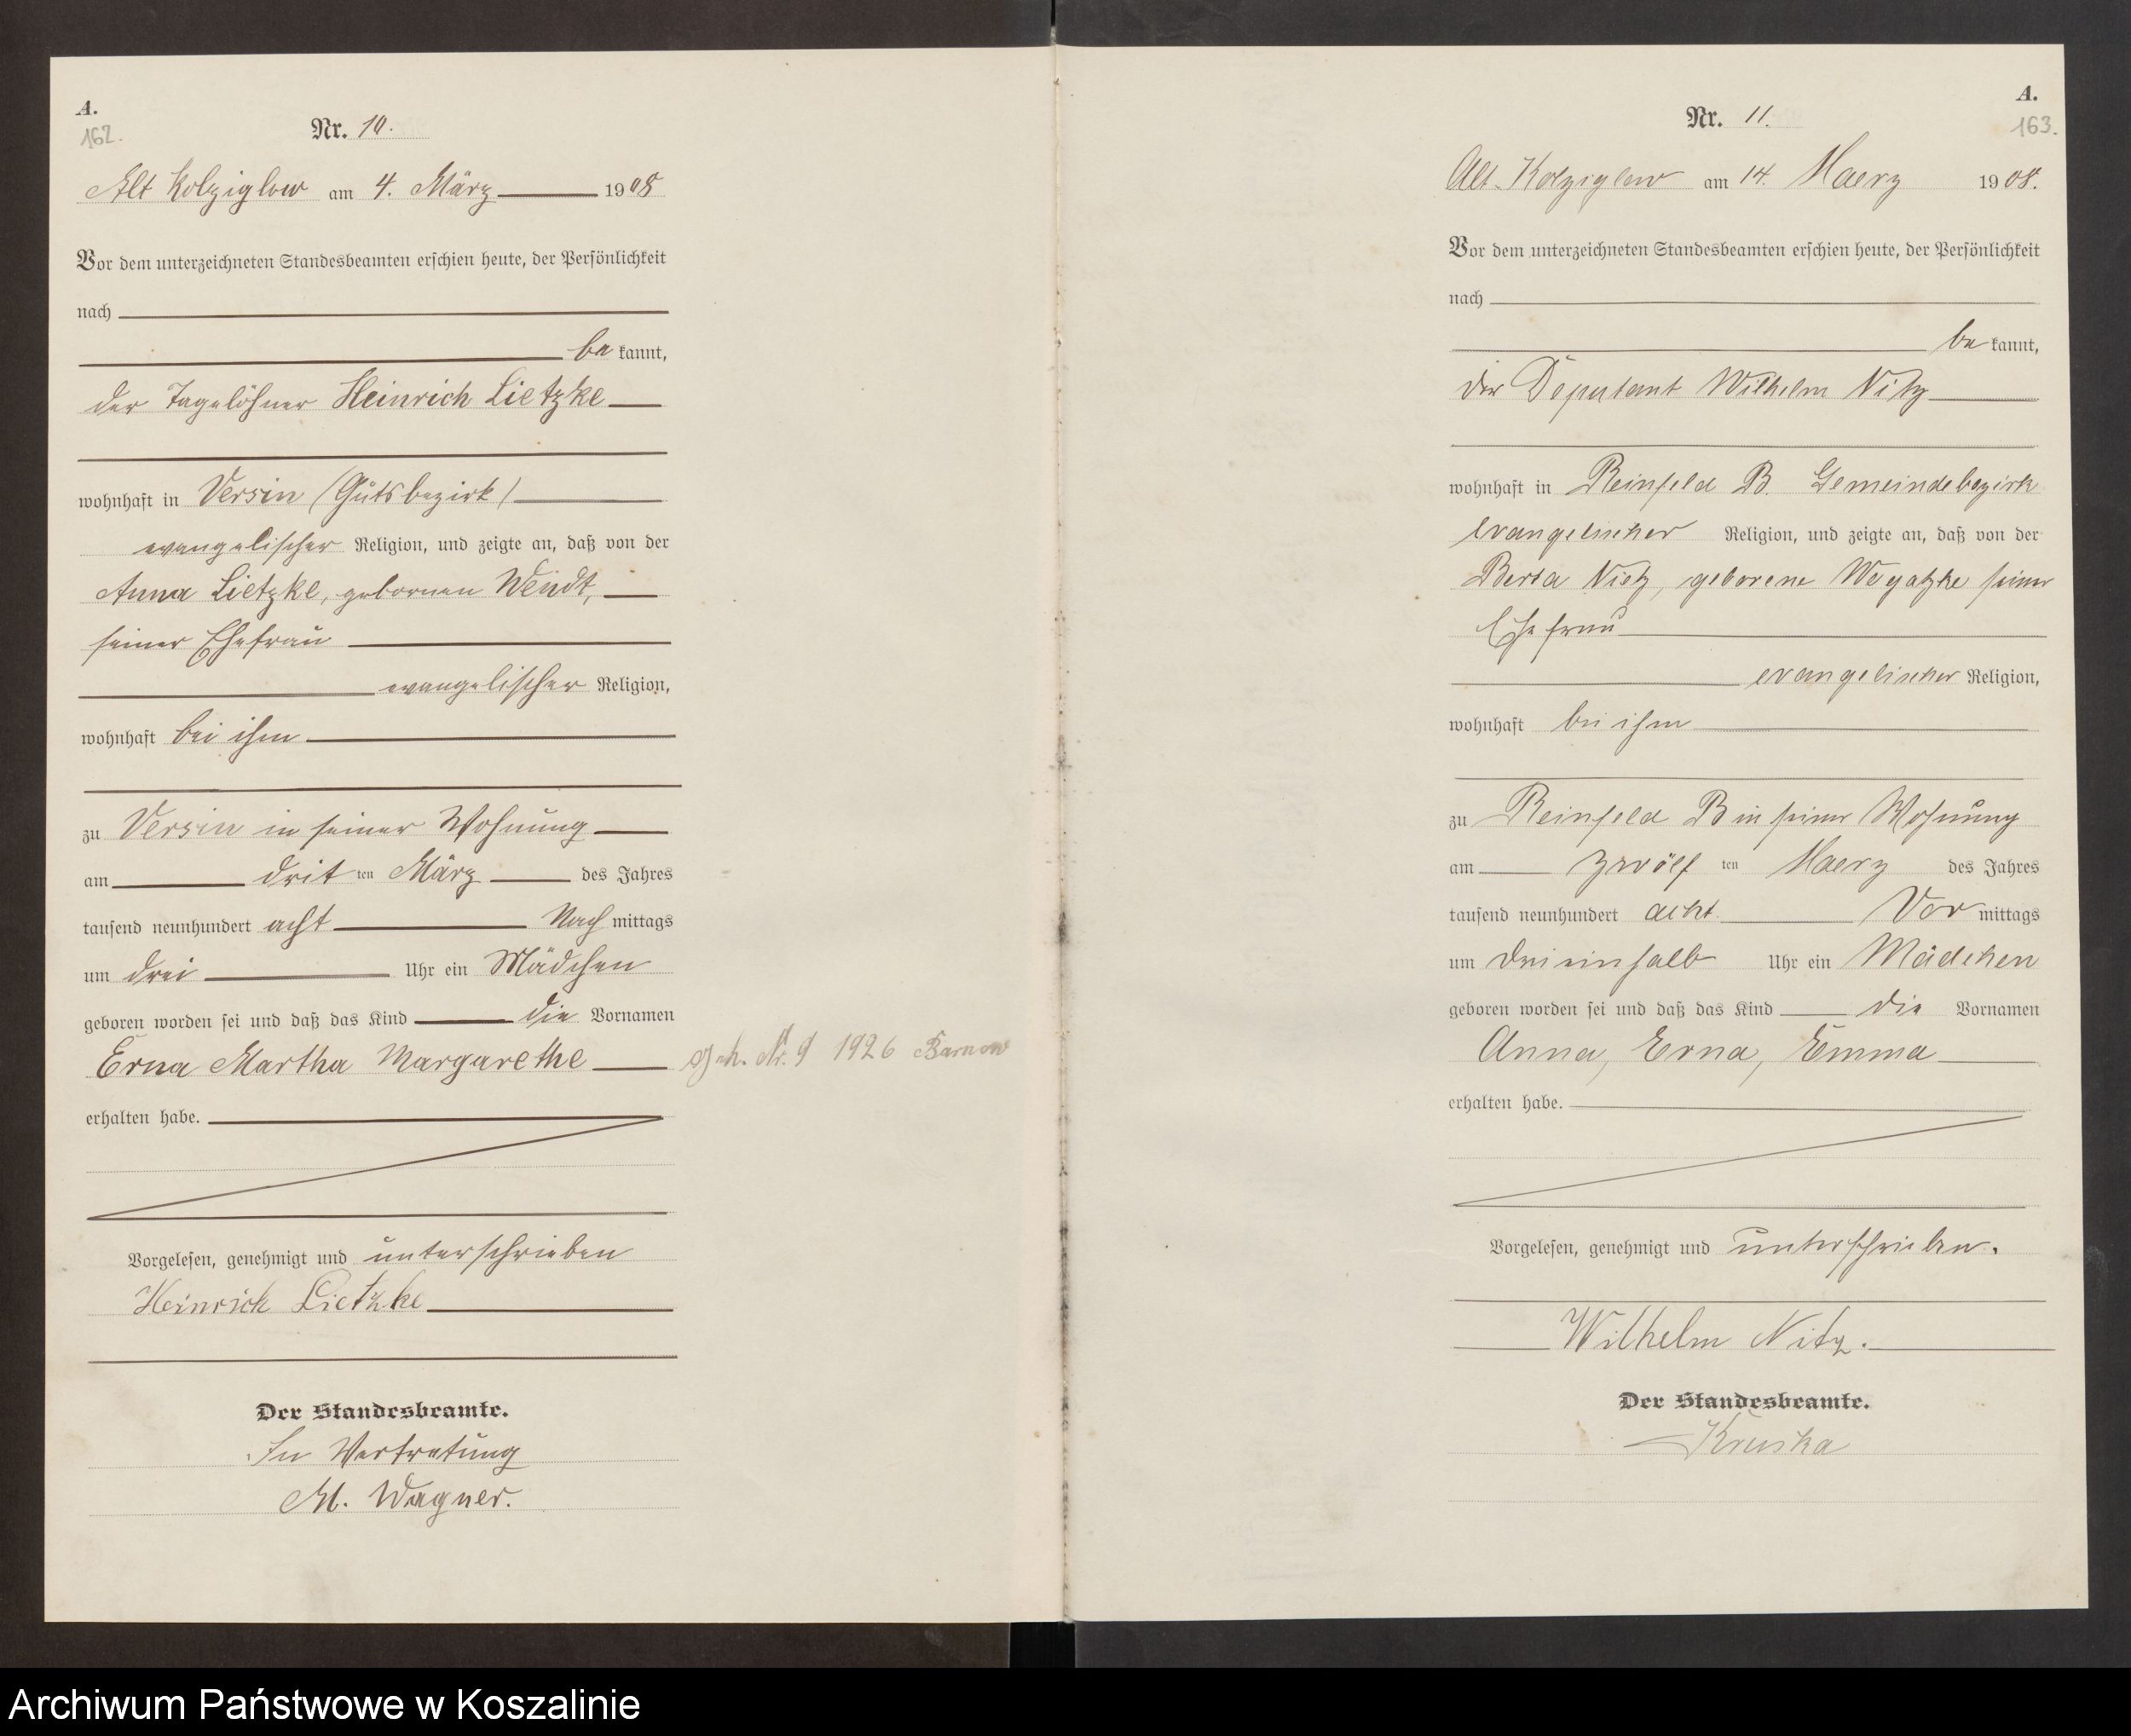 A.
162.
Nr. 10.
Alt Kolziglow am 4. März 1908
Vor dem unterzeichneten Standesbeamten erschien heute, der Persönlichkeit
nach
be kannt,
der Tagelöhner Heinrich Lietzke
wohnhaft in Versin (Gutsbezirk)
evangelischer Religion, und zeigte an, daß von der
Anna Lietzke, gebornen Wendt,
seiner Ehefrau
evangelischer Religion,
wohnhaft bei ihm
zu Versin in seiner Wohnung
am drit ten März des Jahres
tausend neunhundert acht Nach mittags
um drei Uhr ein Mädchen
geboren worden sei und daß das Kind die Vornamen
Erna Martha Margarethe
Nr. 9 1926 Barnow
erhalten habe.
Vorgelesen, genehmigt und unterschrieben
Heinrich Lietzke
Der Standesbeamte.
In Vertretung
M. Wagner.
A.
163.
Nr. 11.
Alt-Kolziglow am 14. Maerz 1908.
Vor dem unterzeichneten Standesbeamten erschien heute, der Persönlichkeit
nach
be kannt,
der Deputant Wilhelm Nitz
wohnhaft in Reinfeld B. Gemeindebezirk
evangelischer Religion, und zeigte an, daß von der
Berta Nietz, geborene Wegatzke seiner
Ehefrau
evangelischer Religion,
wohnhaft bei ihm
zu Reinfeld B in seiner Wohnung
am zwölf ten Maerz des Jahres
tausend neunhundert acht Vor mittags
um dreieinhalb Uhr ein Mädchen
geboren worden sei und daß das Kind die Vornamen
Anna, Erna, Emma
erhalten habe.
Vorgelesen, genehmigt und unterschrieben.
Wilhelm Nitz.
Der Standesbeamte.
Kruska
Archiwum Państwowe w Koszalinie